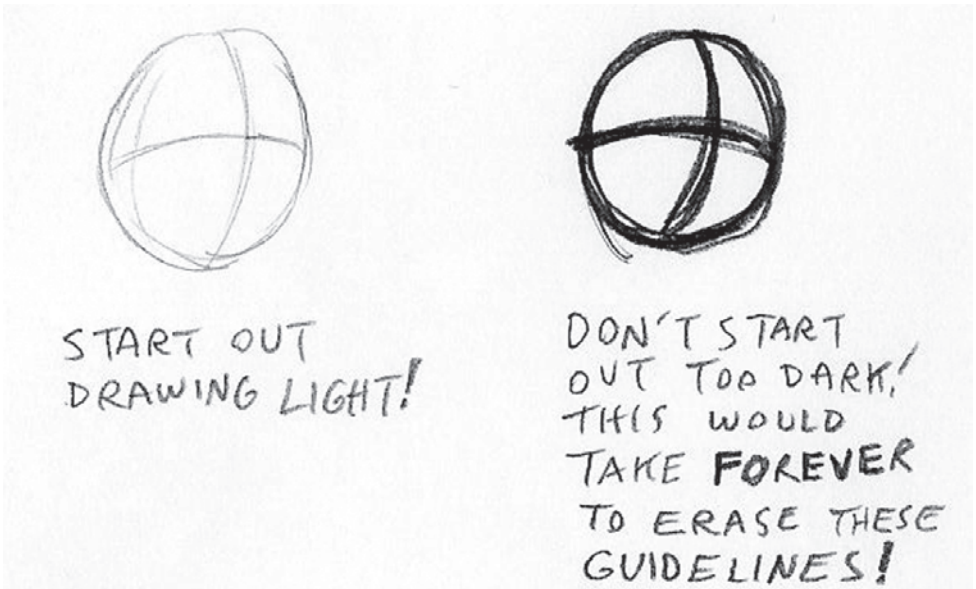 START OUT
DRAWING LIGHT!
DON'T START
OUT TOO DARK!
THIS WOULD
TAKE FOREVER
TO ERASE THESE
GUIDELINES!